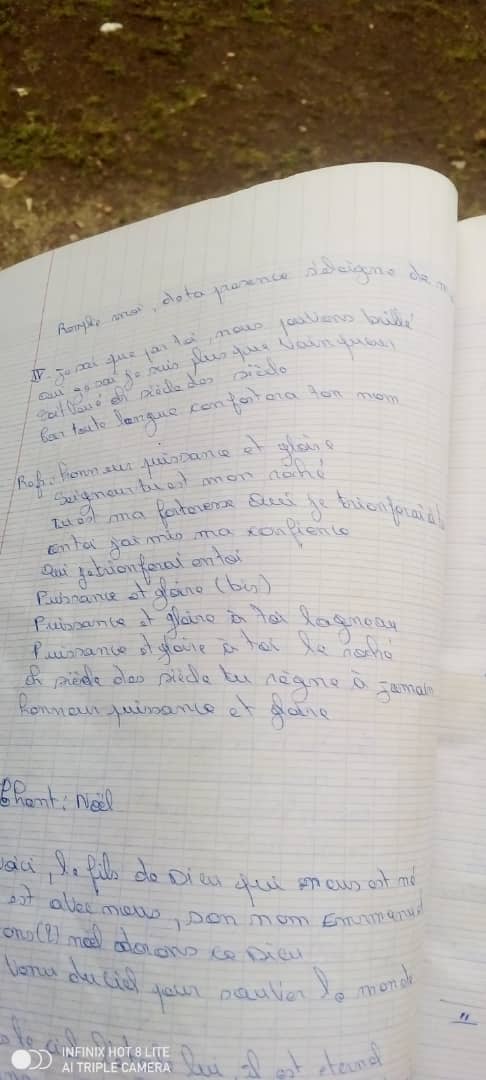 Remplis moi, de ta presence s'eloigne de
IV- je sai que par toi, nous pouvons
oui je sai je suis plus que Vainqueur
soit loué de siècle des siècle
Car toute langue confessera ton nom
Ref: honneur puissance et gloire
Seigneur tu est mon roché
Tu est ma forteresse Oui je
entoi j'ai mis ma confience
Oui je trionferai entoi
Puissance et gloire (bis)
Puissance et gloire à toi l'agneau
Puissance et gloire à toi le roché
de siècle des siècle tu règne à jamais
honneur puissance et gloire
Chant: Noël
voici, le fils de Dieu qui nous est né
est avec nous, son nom Emmanuel
ons(2) noël adorons ce Dieu
Venu du ciel pour sauver le monde
lui, il est eternel
INFINIX HOT 8 LITE
AI TRIPLE CAMERA